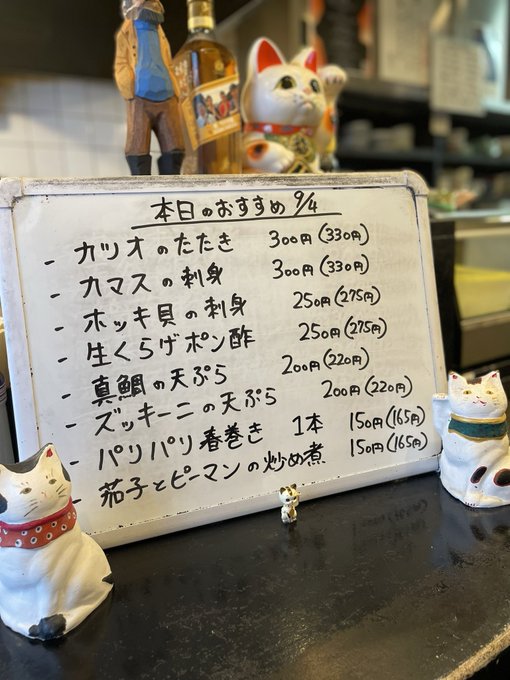 本日のおすすめ 9/4
- カツオのたたき 300円(330円)
- カマスの刺身 300円(330円)
- ホッキ貝の刺身 250円(275円)
- 生くらげポン酢 250円(275円)
- 真鯛の天ぷら 200円(220円)
- ズッキーニの天ぷら 200円(220円)
- パリパリ春巻き 1本 150円(165円)
- 茄子とピーマンの炒め煮 150円(165円)